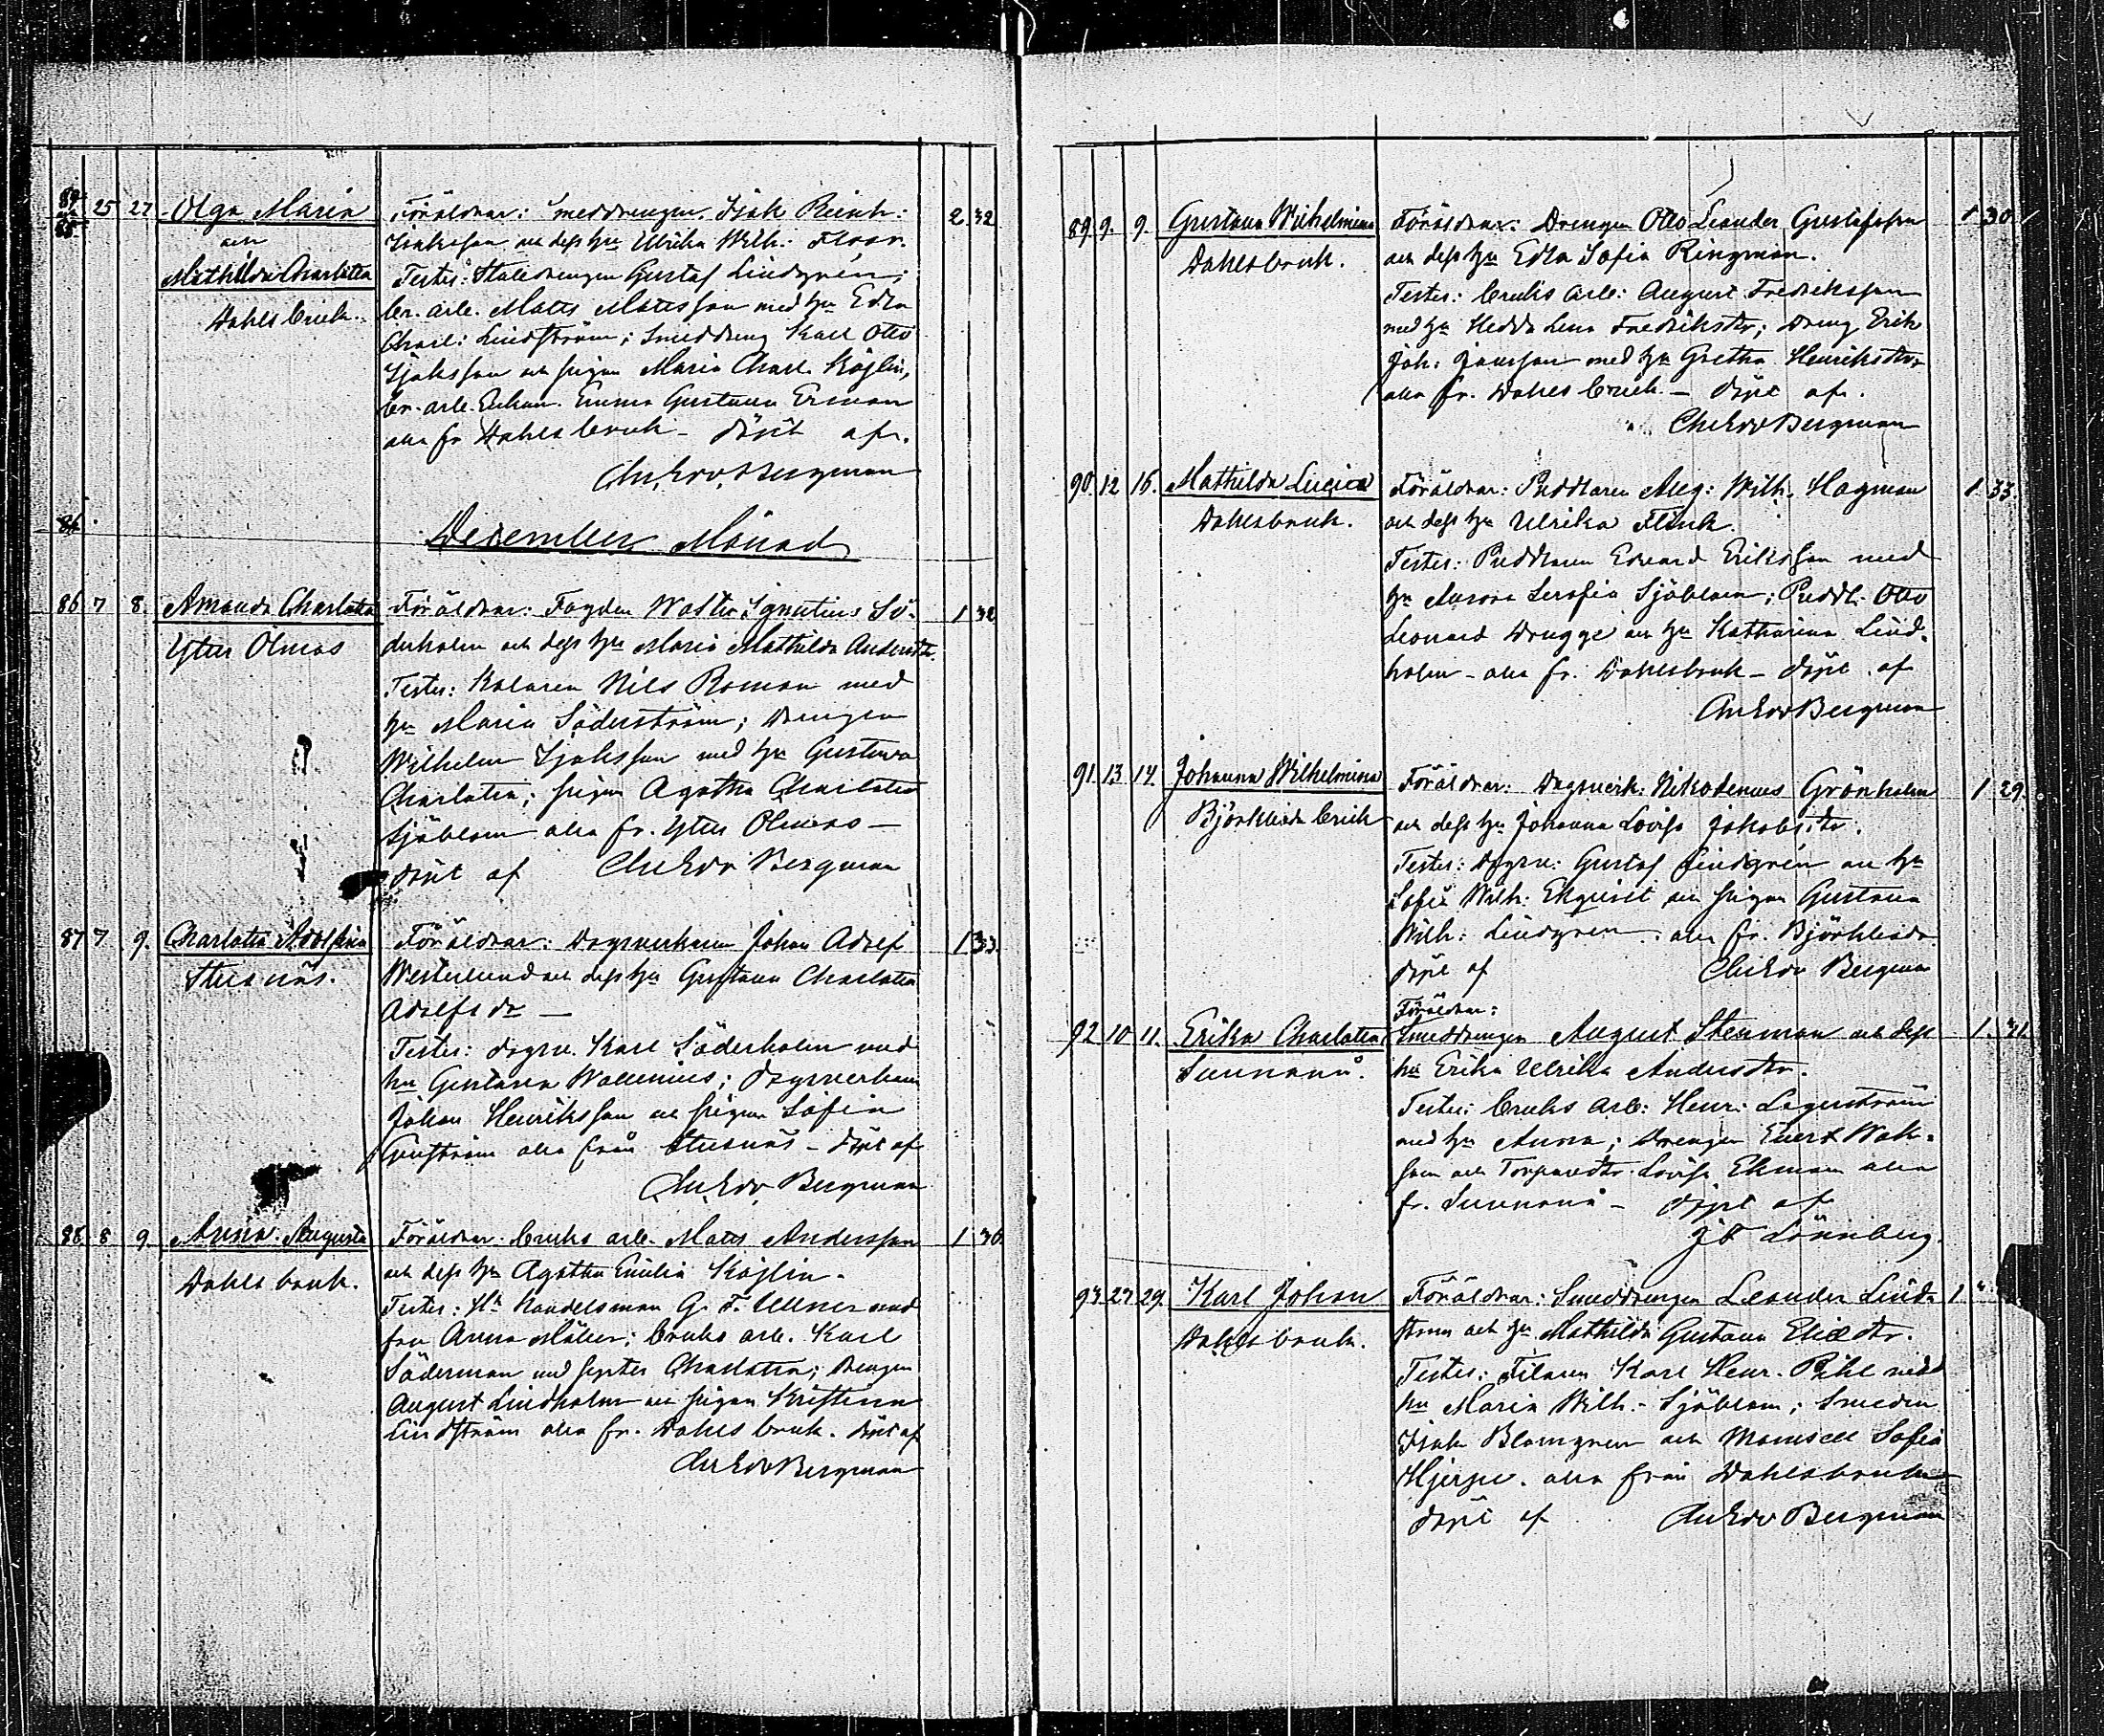 84 och 85 25 27 Olga Maria Föräldrar: Smeddrengen Isak Reinh: 2 32
och Isaksson och dess hu Ulrika Wilh: Floor.
Mathilda Charlotta Testes: Stalldrengen Gustaf Lindgrén;
Dahls bruk. br. arb. Mats Matsson med hu Edla
Charl: Lindström; Smeddreng Karl Otto
Isaksson och pigan Maria Charl. Röglin,
br. arb. Enkan Emma Gustava Erman
alla fr Dahls bruk - döpt af
Chr Edv Bergman
86
December Månad
86 7 8. Amanda Charlotta Föräldrar: Fogden Walter Ignatius Sö- 1 32
Ytter Ölmos derholm och dess hu Maria Mathilda Andersdtr.
Testes: Kolaren Nils Roman med
hu Maria Söderström; Drengen
Wilhelm Isaksson med hu Gustava
Charlotta; pigan Agatha Charlotta
Sjöblom alla fr. Ytter Ölmos —
döpt af Chr Edv Bergman
87 7 9. Charlotta Adolfina Föräldrar: Dagsverkaren Johan Adolf 1 33.
Stusnäs. Westerlund och dess hu Gustava Charlotta
Adolfs dr —
Testes: dagsv. Karl Söderholm med
hu Gustava Wallenius; Dagsverkaren
Johan Henriksson och pigan Sofia
Enström alla från Stusnäs - döpt af
Chr Edv Bergman
88 8 9. Anna Augusta Föräldrar: bruks arb. Mats Andersson 1 36.
Dahls bruk. och dess hu Agatha Emilia Köglin.
Testes: Hr Handelsman G. F. Ullner med
fru Anna Måler; bruks arb. Karl
Söderman med syster Charlotta; Drengen
August Lindholm och pigan Kristina
Lindström alla fr. Dahls bruk. döpt af
Chr Edv Bergman
89 9. 9. Gustava Wilhelmina Föräldrar: Drengen Otto Leander Gustafsson 1 30
Dahlsbruk. och dess hu Edla Sofia Ringman.
Testes: bruks arb: August Fredriksson
med hu Hedda Lena Fredriksdtr; Dreng Erik
Joh: Jansson med hu Gretha Henriksdtr
alla fr. Dahls bruk. — döpt af
Chr Edv Bergman
90 12 16. Mathilda Lucia Föräldrar: Puddlaren Aug: Wilh. Hagman 1. 33.
Dahlsbruk. och dess hu Ulrika Flink.
Testes: Puddlaren Edvard Eriksson med
hu Aurora Serafia Sjöblom; Puddl. Otto
Leonard Drugge och hu Katharina Lind-
holm - alla fr. Dahlsbruk - döpt af
Chr Edv Bergman
91. 13 14. Johanna Wilhelmina Föräldrar: Dagsverk: Nikodemus Grönholm 1 29.
Björkboda bruk och dess hu Johanna Lovisa Jakobsdtr.
Testes: Dagsv: Gustaf Lindgrén och hu
Sofia Wilh: Ekqvist och pigan Gustava
Wilh: Lindgren alla fr. Björkboda
döpt af Chr Edv Bergman
Föräldrar:
92 10 11. Erika Charlotta Smeddrengen August Stenman och dess 1. 31.
Sunnanå. hu Erika Ulrika Andersdtr.
Testes: bruks arb: Henr: Lagerström
med hu Anna; Drengen Evert Wak-
sam och Torparedtr Lovisa Ekman alla
fr. Sunnanå - döpt af
J F Lönnberg.
93. 27 29. Karl Johan Föräldrar: Smeddrengen Leander Lind- 1
Dahls bruk. ström och hu Mathilda Gustava Eliedtr.
Testes: Filaren Karl Henr. Pihl med
hu Maria Wilh.- Sjöblom; Smeden
Isak Blomgren och Mamsell Sofia
Hjerpe. alla från Dahlsbruk
döpt af Chr Edv Bergman